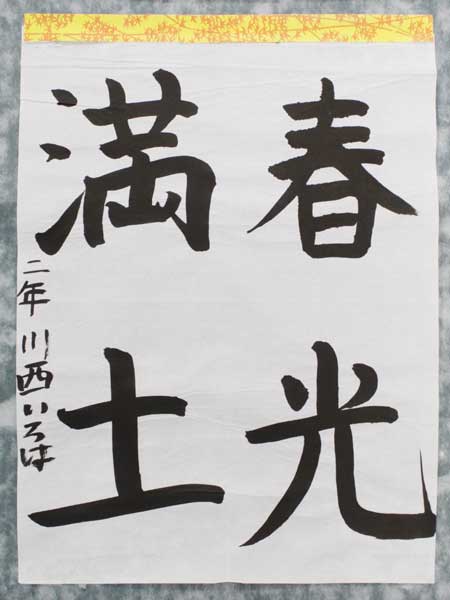 春光
満土
二年 川西いろは